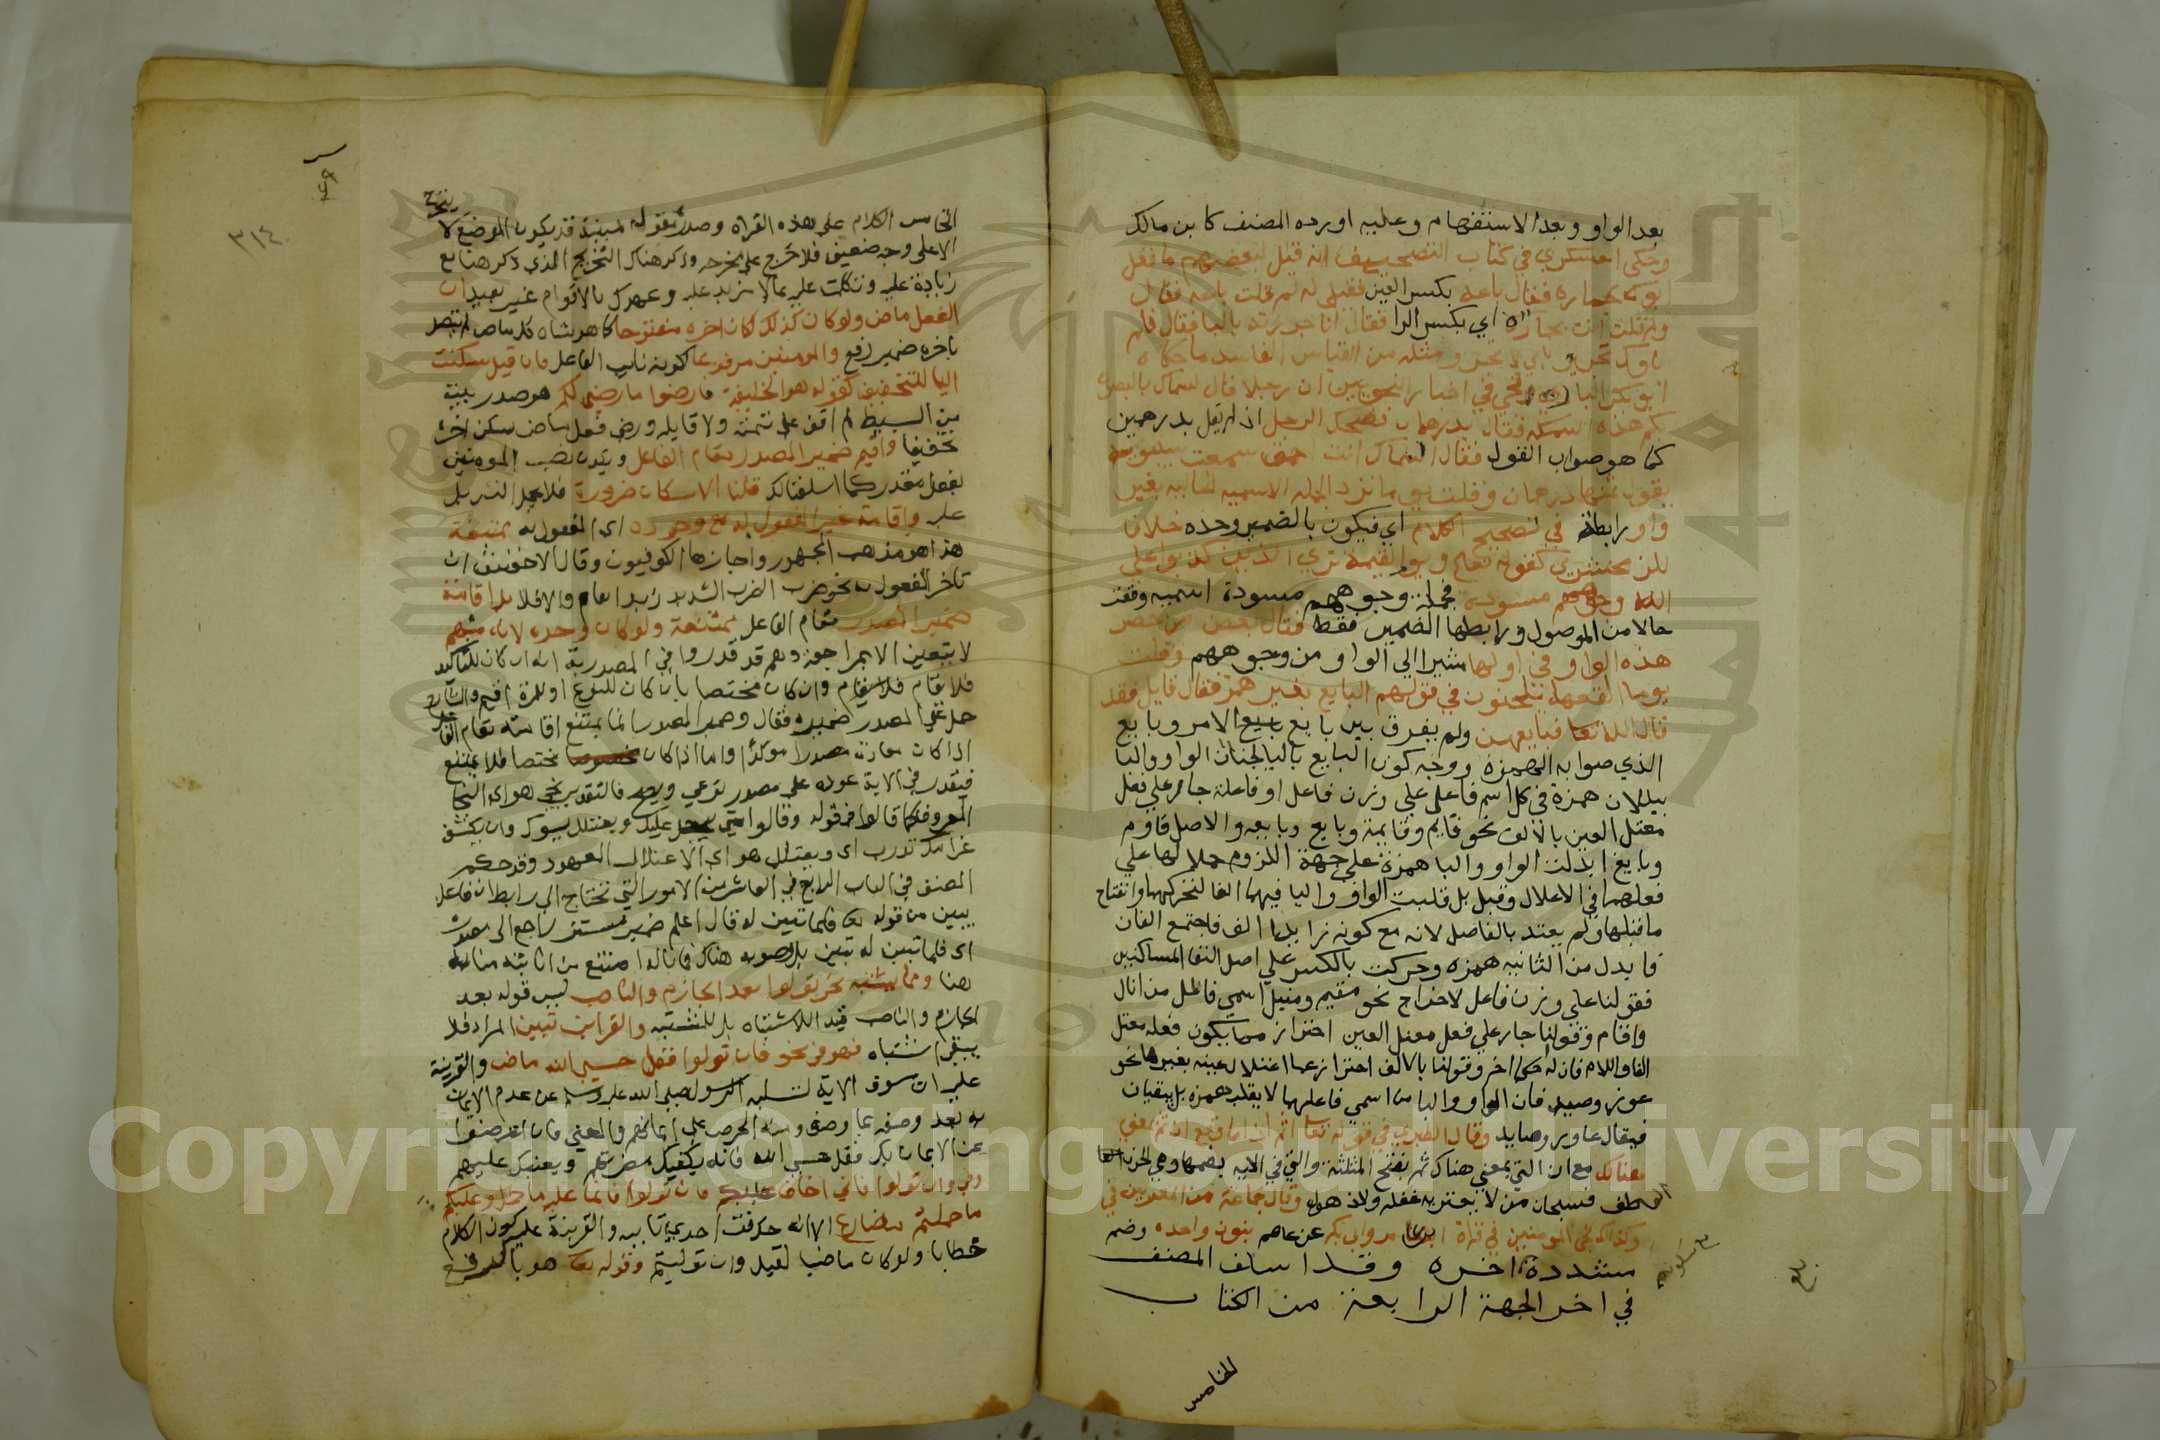 بعد الواو وبعد الاستفهام وعليه اورده المصنف كابن مالك
وحكى العسكري في كتاب التصحيف انه قيل لبعضهم ما فعل
ابوك بحماره فقال باعه بكسر العين فقيل له لم قلت باعه فقال
ولم قلت انت بحماره اي بكسر الرا فقال انا جررته بالبا فقال فلم
باوك تجر وبائي لا تجر ومثله من القياس الفاسد ما حكاه
ابو بكر التاريخي في اخبار النحويين ان رجلا قال لسماك بالبصرة
بكم هذه السمكة فقال بدرهمان فضحك الرجل اذ لم يقل بدرهمين
كما هو صواب القول فقال السماك انت احمق سمعت سيبويه
يقول ثمنها درهمان وقلت يوما ترد الجملة الاسمية الحالية بغير
واو رابطة في فصيح الكلام اي فيكون بالضمير وحده خلافا
للزمخشري كقوله تعالى ويوم القيمة ترى الذين كذبوا على
الله وجوههم مسودة فجملة وجوههم مسودة اسمية وقعت
حالا من الموصول ورابطها الضمير فقط فقال بعض من حضر
هذه الواو في اولها مشيرا الى الواو من وجوههم وقلت
يوما الفقهاء يلحنون في قولهم البايع بغير همز فقال قايل فقد
قال الله تعا فبايعهن ولم يفرق بين بايع بيع الامر وبايع
الذي صوابه الهمزة ووجه كون البايع باليا لحنا ان الواو واليا
يبدلان همزة في كل اسم فاعل على وزن فاعل او فاعلة جار على فعل
معتل العين بالالف نحو قايم وقايمة وبايع وبايعه والاصل قاوم
وبايع ابدلت الواو واليا همزة على جهة اللزوم حملا لها على
فعلهما في الاعلال وقيل بل قلبت الواو واليا فيهما الفا لتحركهما وانفتاح
ما قبلها ولم يعتد بالفاصل لانه مع كونه زايدا الف فاجتمع الفان
فابدل من الثانيه همزه وحركت بالكسر على اصل التقا الساكنين
فقولنا على وزن فاعل لاخراج نحو مقيم ومنيل اسمي فاعل من انال
واقام وقولنا جار على فعل معتل العين احتراز مما يكون فعله معتل
الفا واللام فان له حكما اخر وقولنا بالالف احترازعما اعتلال عينه بغيرها نحو
عور وصيد فان الواو واليا من اسمي فاعلهما لا يقلب همزه بل يبقيان
فيقال عاور وصايد وقال الطبري في قوله تعا اثم اذا ما وقع ان ثم بمعنى
هنالك مع ان التي بمعنى هناك ثم بفتح المثلثة والتي في الايه بضمها وهي
العطف فسبحان من لا يعتريه غفله ولا ذهول وقال جماعة من المعربين في
وكذلك نجي المؤمنين في قراة ابن عامر وابي بكر عن عاصم بنون واحده وضم
مشددة اخره وقد اسلف المصنف
في اخر الجهة الرابعة من الكتاب
الخامس
الخامس الكلام على هذه القراة وصدره بقوله تنبيه قد يكون الموضع لا يتخرج
الا على وجه ضعيف فلا حرج على مخرجه وذكر هناك التخريج الذي ذكر هنا مع
زيادة عليه وتكلمت عليه بما لا مزيد عليه وعهدك بالاقوام غير بعيد ان
الفعل ماض ولو كان كذلك لكان اخره مفتوحا كما هو شان كل ماض لم يتصل
باخره ضمير رفع والمومنين مرفوعا لكونه نايب الفاعل فان قيل سكنت
اليا للتخفيف كقوله هو الخليفة فارضوا ما رضي لكم هو صدر بيت
من البسيط لم اقف على تتمته ولا قايله ورضي فعل ماض سكن اخره
تخفيفا واقيم ضمير المصدر مقام الفاعل ويكون نصب المومنين
بفعل مقدر كما اسلفنالك قلنا الاسكان ضرورة فلا يحمل التنزيل
عليه واقامة غير المفعول به مع وجوده اي المفعول به ممتنعة
هذا هو مذهب الجمهور واجازها الكوفيون وقال الاخفش ان
تاخر المفعول به نحو ضرب الضرب الشديد زيدا اقام والا فلا بل اقامة
ضمير المصدر مقام الفاعل ممتنعة ولو كان وحده لانه مبهم
لا يتعين الا بمراجعه وهم قد قدروا في المصدرية انه ان كان للتاكيد
فلا يقام وان كان مختصا بان كان للنوع او للمرة اقيم والشارح
حمل على المصدر ضميره فقال وضمير المصدر انما يمتنع اقامته مقام الفاعل
اذا كان مصدرا موكدا واما اذا كان مختصا فلا يمتنع
فيقدر في الاية عوده على مصدر نوعي ويصح فالتقدير نجي هو اي النجا
المعروف كما قالوا في قوله وقالوا متى يبخل عليك ويعتلل يسوك وان يكشف
غرامك تدرب اي ويعتلل هو اي الاعتلال المعهود وقد حكم
المصنف في الباب الرابع في العاشر من الامور التي تحتاج الى رابط ان فاعل
تبين من قوله تعا فلما تبين له قال اعلم ضمير مستتر راجع الى مصدر
اي فلما تبين له تبين
هنا ومما يشتبه نحو تولوا بعد الجازم والناصب ليس قوله بعد
الجازم والناصب قيد اللاشتباه بل للمشتبه والقراين تبين المراد فلا
يبقى اشتباه فهو في نحو فان تولوا فقل حسبي الله ماض والقرينة
عليه ان سوق الاية لتسليه الرسول صلى الله عليه وسلم عن عدم الايمان
به بعد وصفه بما وصف وسلم الحرص على ايمانهم والمعنى فان اعرضوا
عن الايمان بك فقل حسبي الله فانه يكفيك مضرتهم ويعينك عليهم
وفي وان تولوا فاني اخاف عليكم فان تولوا فانما عليه ما حمل وعليكم
ما حملتم مضارع الا انه حذفت احدى تاييه والقرينة عليه كون الكلام
خطابا ولو كان ماضيا لقيل وان توليتم وقوله تعا هو بالرفع
٣١٤